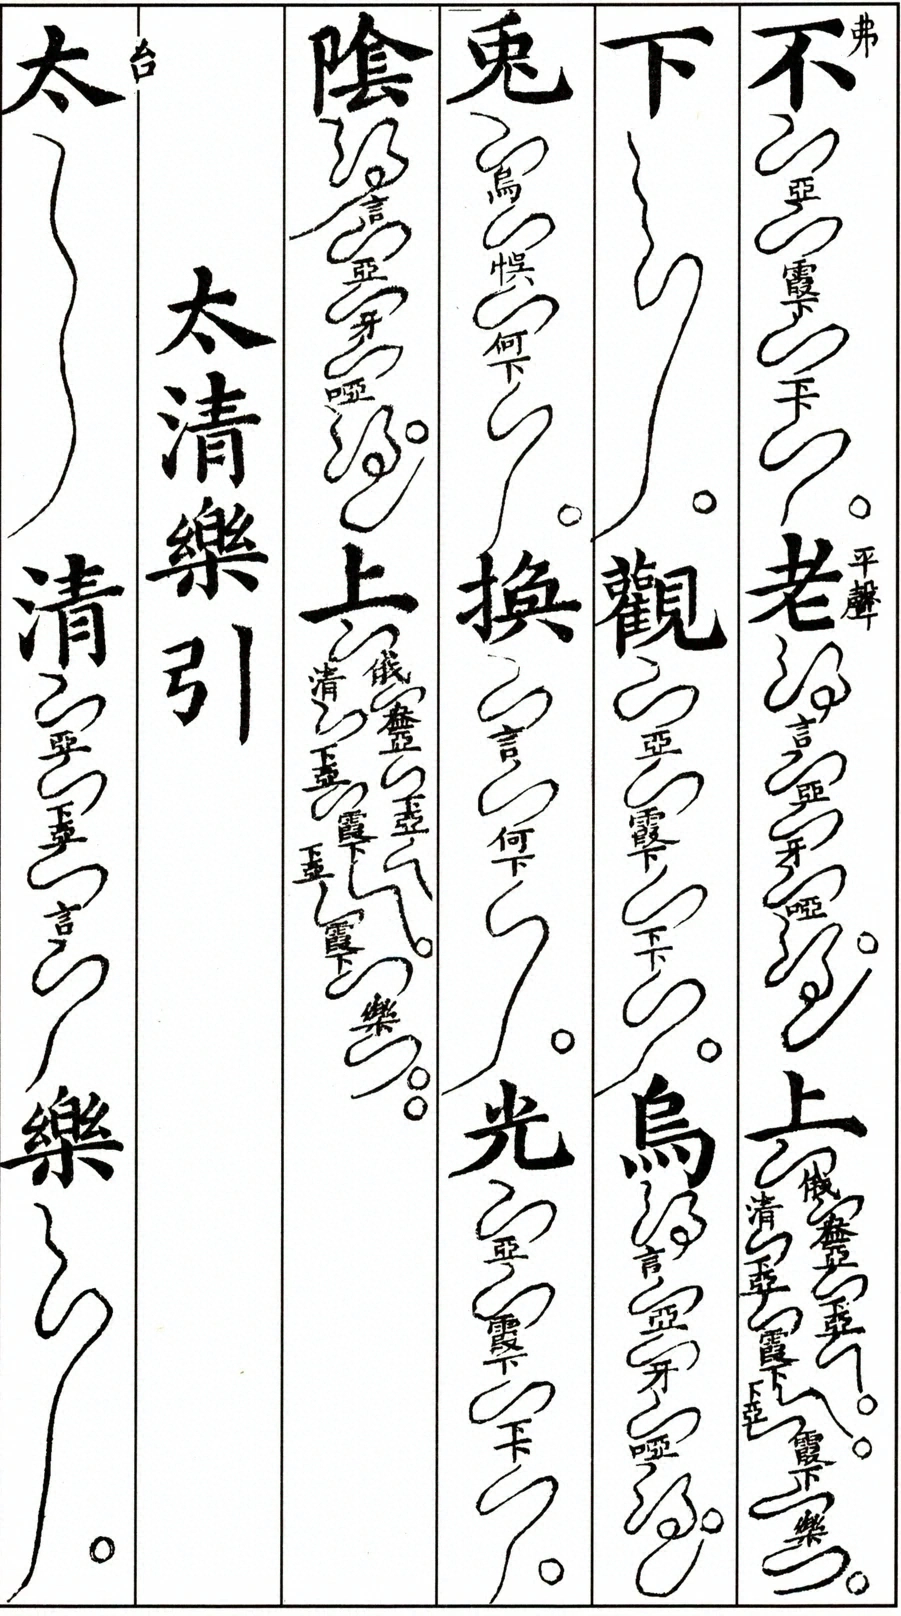 不弗亞霞下下下老平聲言亞牙啞上俄盎亞下亞清下亞霞下下亞霞下樂
下觀亞霞下下下烏言亞牙啞
兎烏悞何下換言何下光亞霞下下下
陰言亞牙啞上俄盎亞下亞清下亞霞下下亞霞下樂
太清樂引
太台清亞下亞言樂